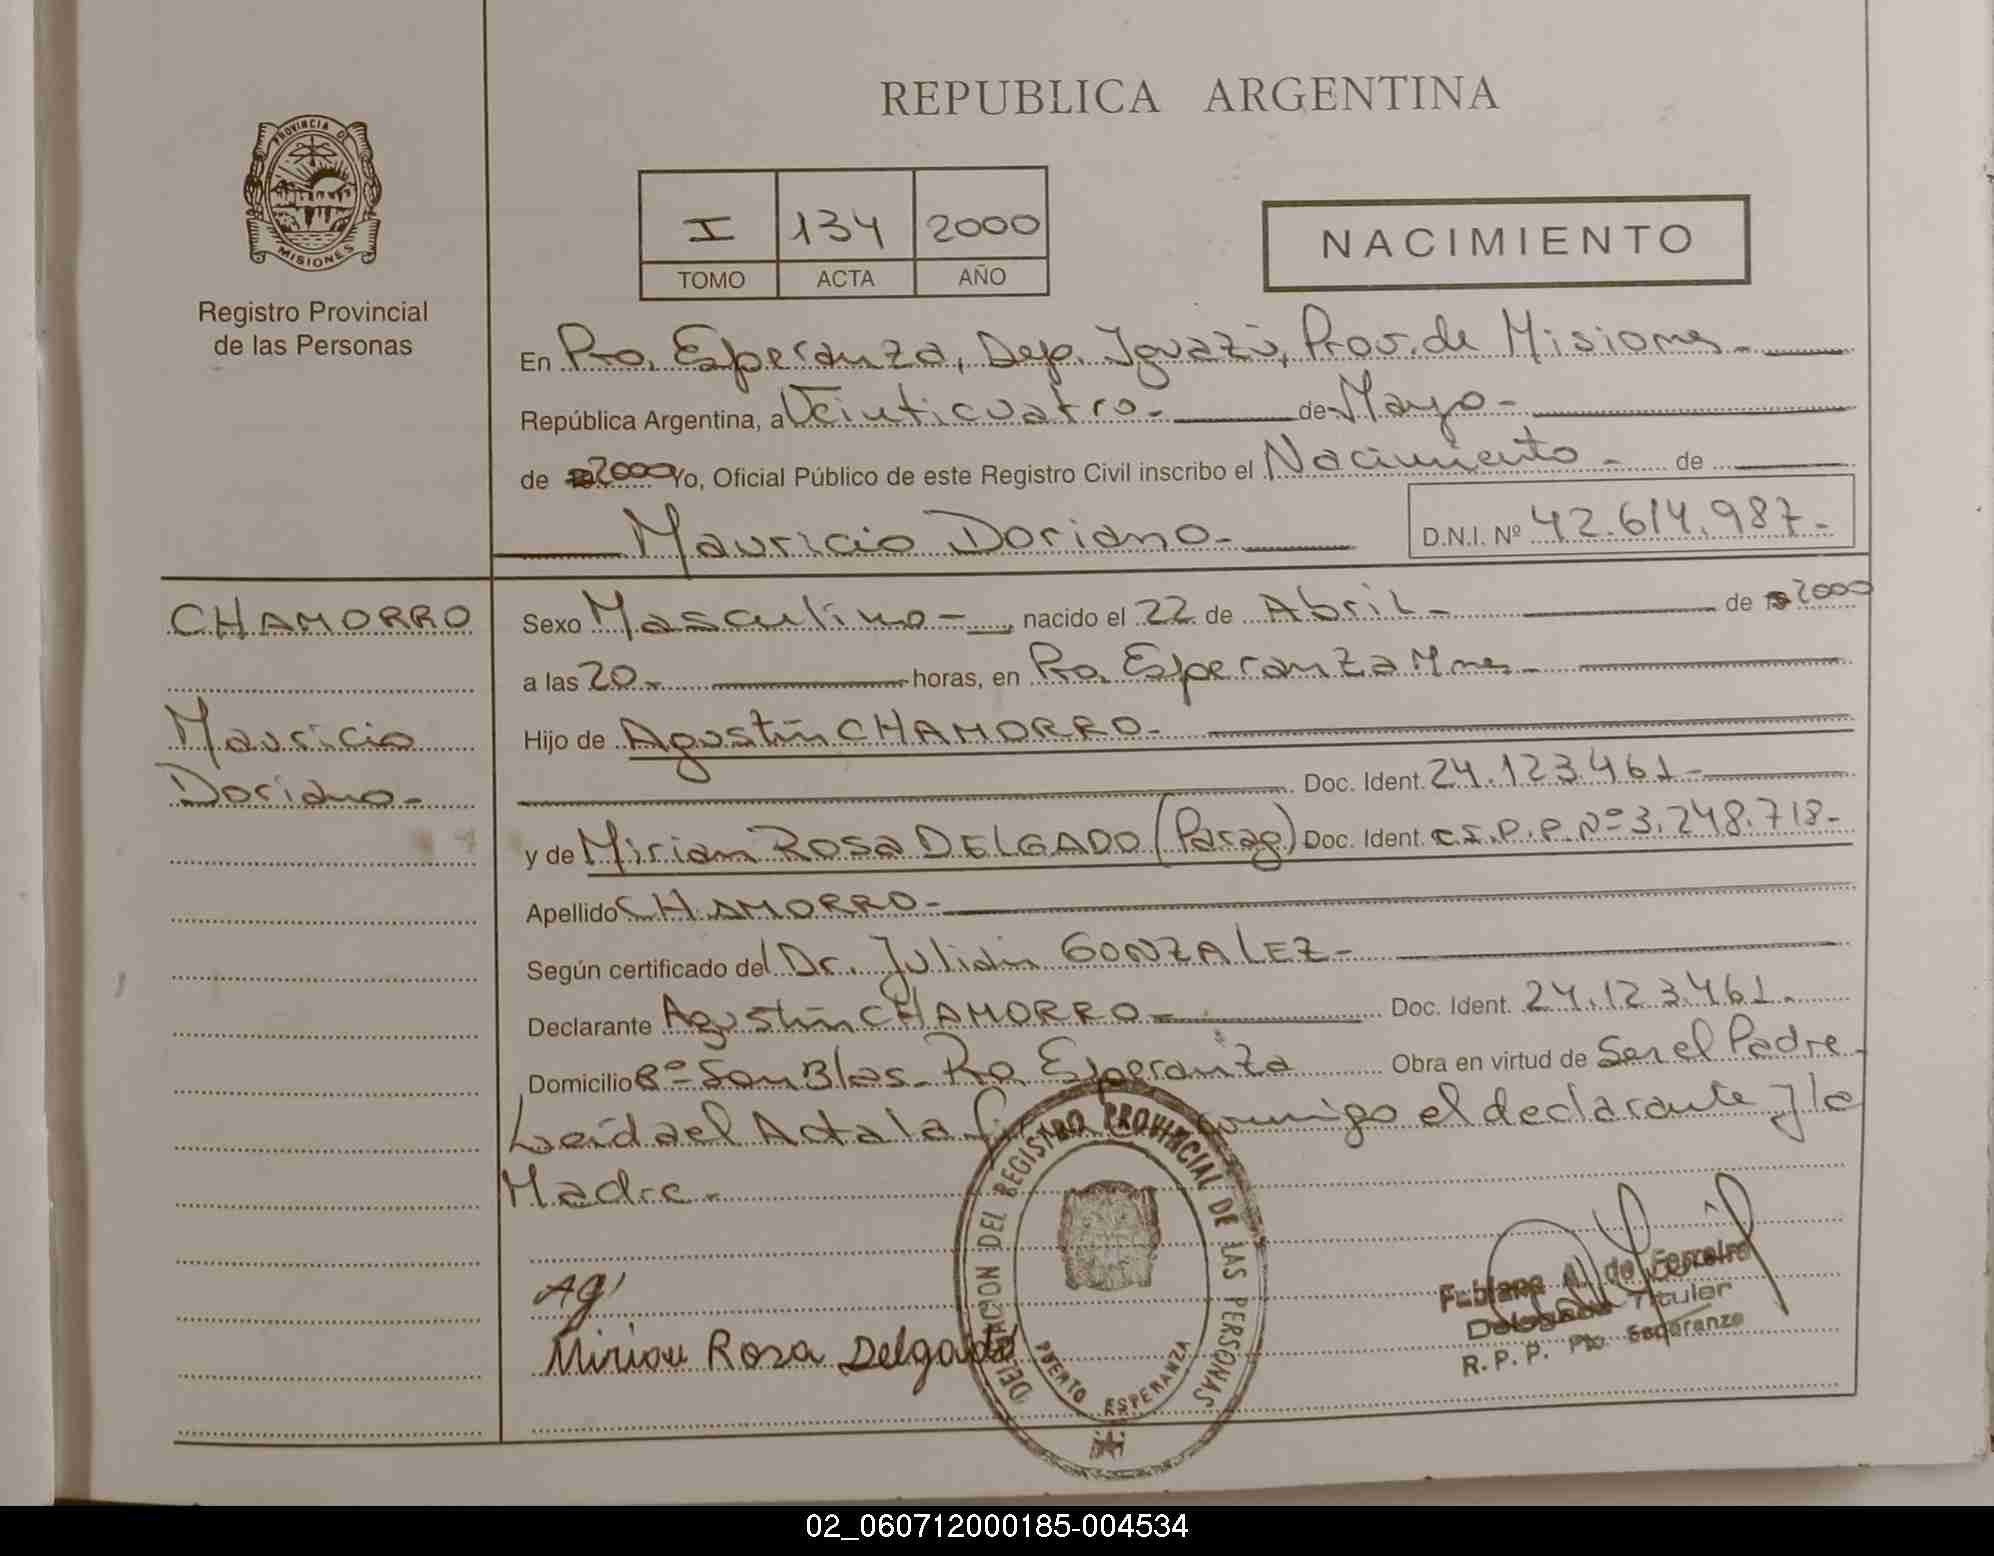 REPUBLICA ARGENTINA
PROVINCIA D
MISIONES
Registro Provincial
de las Personas
I 134 2000
TOMO ACTA AÑO
NACIMIENTO
En Pto. Esperanza, Dep. Iguazú, Prov. de Misiones.-
República Argentina, a Veinticuatro.- de Mayo-
de 2000 Yo, Oficial Público de este Registro Civil inscribo el Nacimiento - de
Mauricio Doriano- D.N.I. Nº 42.614.987.-
CHAMORRO
Mauricio
Doriano-
Sexo Masculino-, nacido el 22 de Abril- de 2000
a las 20.- horas, en Pto. Esperanza Mnes-
Hijo de Agustín CHAMORRO.-
Doc. Ident. 24.123.461-
y de Mirian ROSA DELGADO (Parag) Doc. Ident. C.I.P.P. Nº 3.248.718-
Apellido CHAMORRO-
Según certificado del Dr. Julián GONZALEZ-
Declarante Agustín CHAMORRO- Doc. Ident. 24.123.461.-
Domicilio Bº San Blas- Pto Esperanza Obra en virtud de Ser el Padre-
Leída el Acta la conmigo el declarante y la
Madre.-
Ag
Mirian Rosa Delgado
DELEGACION DEL REGISTRO PROVINCIAL DE LAS PERSONAS
PUERTO ESPERANZA
Fabiana de Ferreira
Delegada Titular
R. P. P. Pto. Esperanza
02_060712000185-004534